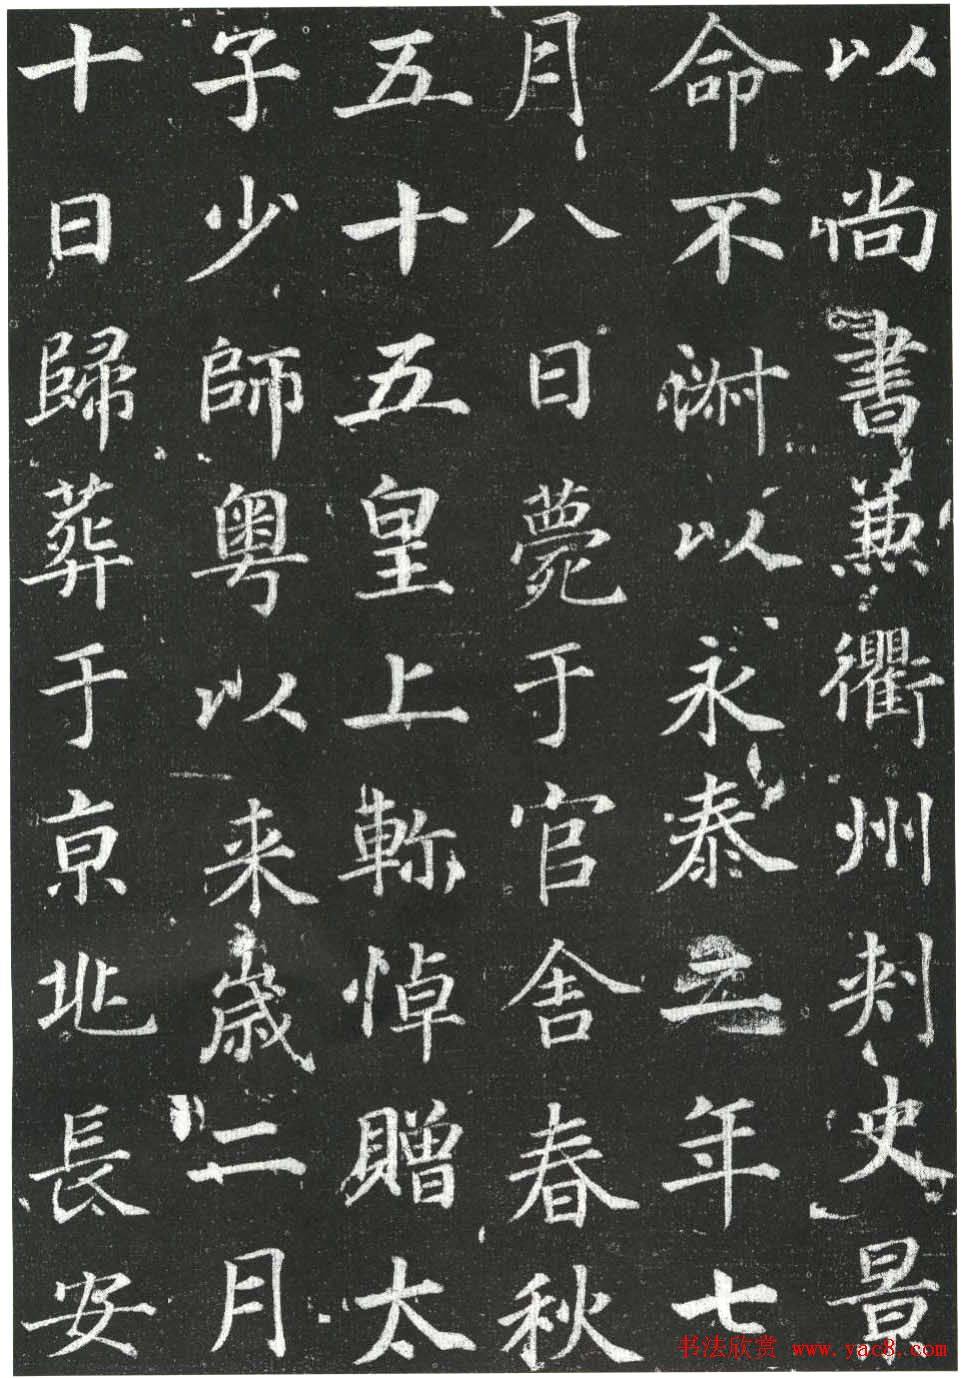 以尚書兼衢州刺史景
命不以永泰二年七
月八日薨于官舍春秋
五十五皇上軫悼贈太
子少師粤以来歲二月
十日歸葬于亰兆長安
书法欣赏 www.yac8.com